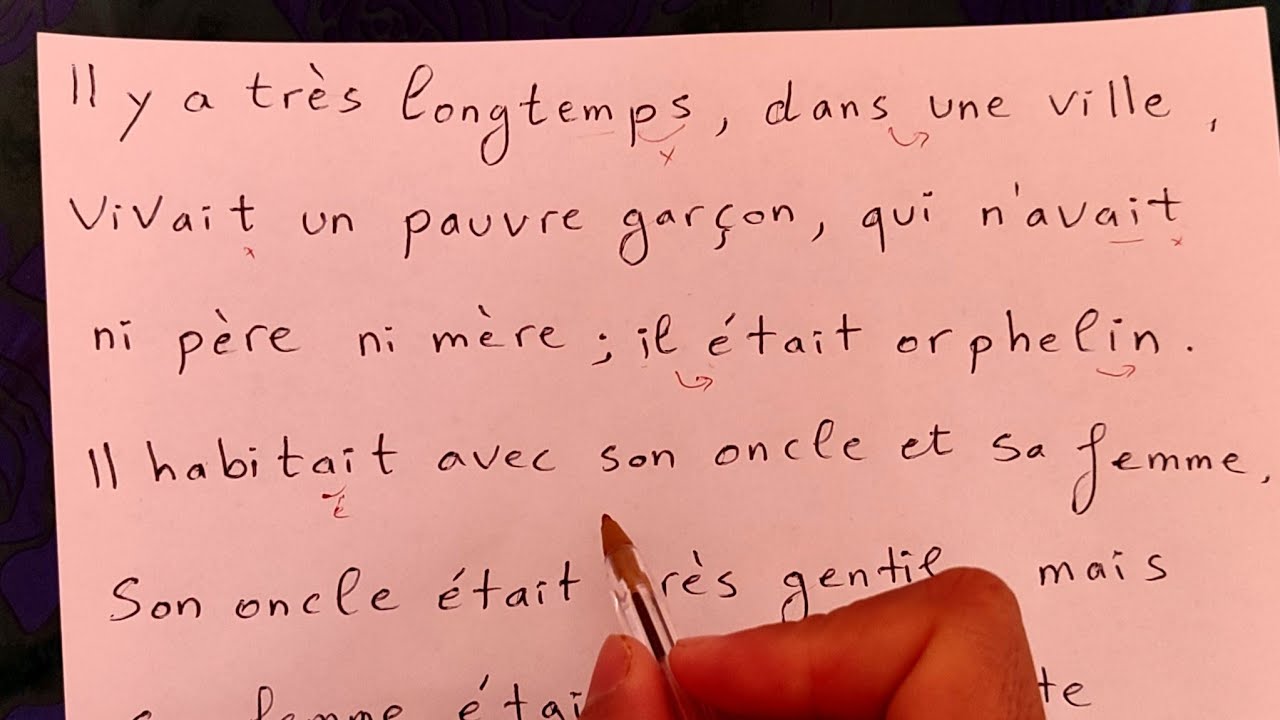 Il y a très longtemps, dans une ville,
vivait un pauvre garçon, qui n'avait
ni père ni mère ; il était orphelin.
Il habitait avec son oncle et sa femme,
é
Son oncle était très gentil mais
femme